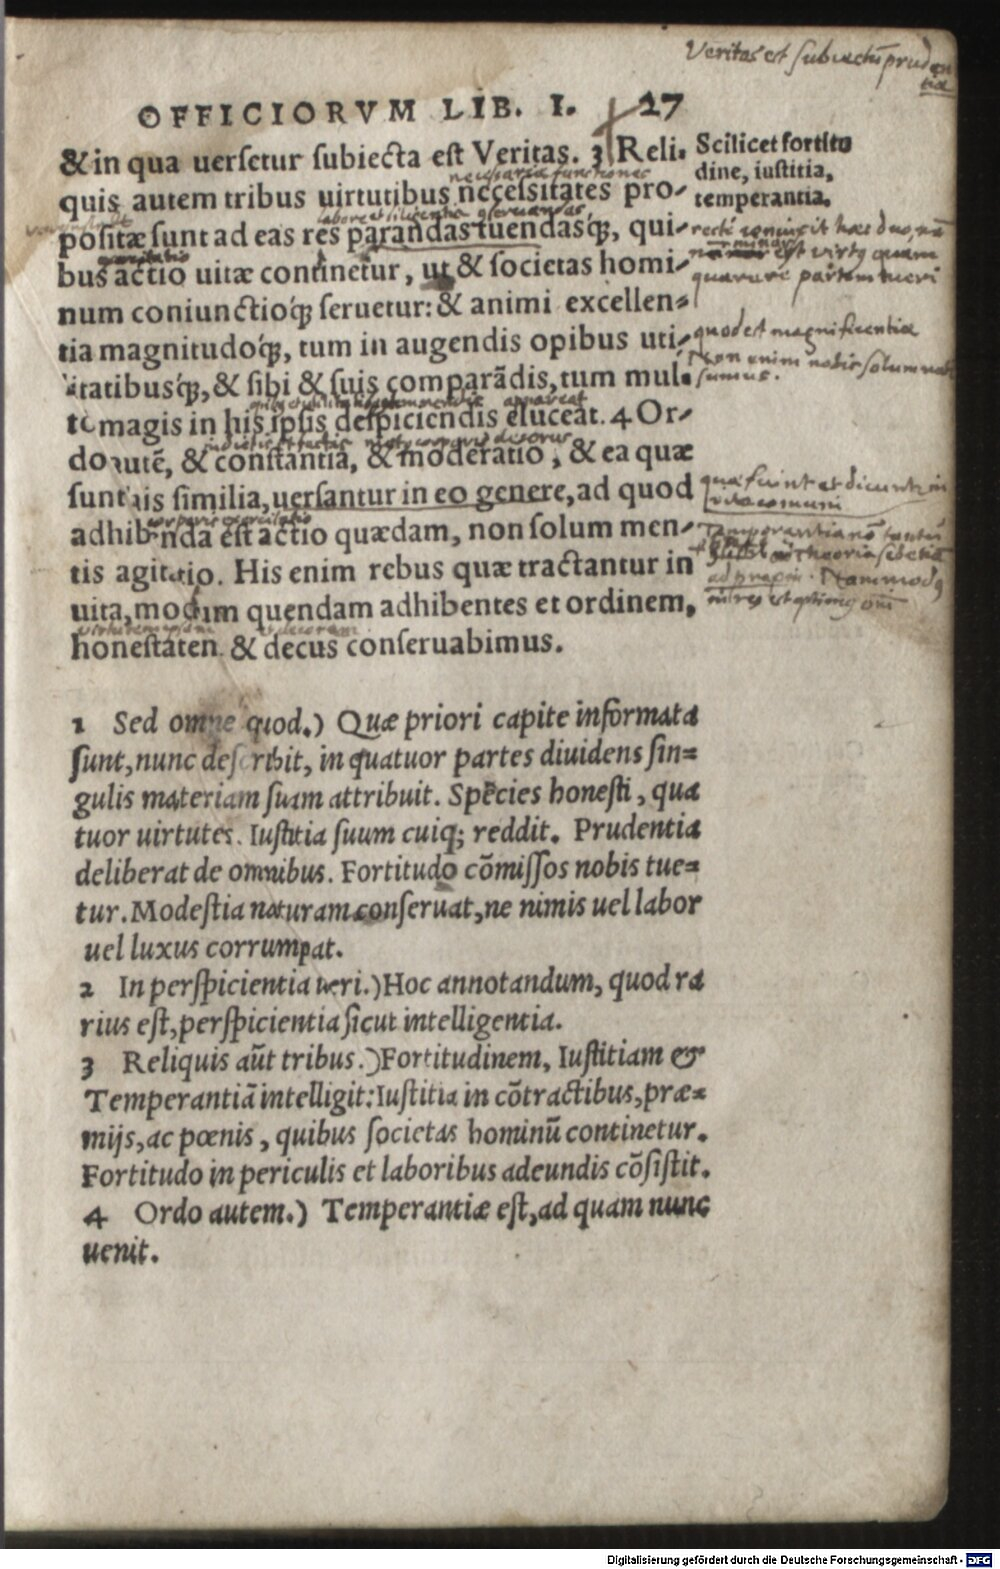 Veritas est subiectũ pruden
tiæ
OFFICIORVM LIB. I. 27
& in qua uersetur subiecta est Veritas. 3 Reli-
quis autem tribus uirtutibus necessitates pro-
positæ sunt ad eas res parandas tuendasq́;, qui-
bus actio uitæ continetur, ut & societas homi-
num coniunctioq́; seruetur: & animi excellen-
tia magnitudoq́;, tum in augendis opibus uti-
litatibusq́;, & sibi & suis comparãdis, tum mul-
to magis in his ipsis despiciendis eluceat. 4 Or-
do autẽ, & constantia, & moderatio, & ea quæ
sunt his similia, uersantur in eo genere, ad quod
adhibenda est actio quædam, non solum men-
tis agitatio. His enim rebus quæ tractantur in
uita, modum quendam adhibentes et ordinem,
honestatem & decus conseruabimus.
Scilicet fortitu
dine, iustitia,
temperantia.
necessariæ functiones
labore et diligentia
appareat
corporis exercitatio
et decorum
recte coniungit hæc duo, nã
est virtus quam
quærere partem tueri
quod est magnificentiæ
Non enim nobis solum nati
sumus.
quæ fiunt et dicuntur in
vita comuni
Temperantia nõ tantũ
ad praxin. Nam modus
in reb est optimus
1 Sed omne quod.) Quæ priori capite informata
sunt, nunc describit, in quatuor partes diuidens sin=
gulis materiam suam attribuit. Species honesti, qua
tuor uirtutes. Iustitia suum cuiq; reddit. Prudentia
deliberat de omnibus. Fortitudo cõmissos nobis tue=
tur. Modestia naturam conseruat, ne nimis uel labor
uel luxus corrumpat.
2 In perspicientia ueri.) Hoc annotandum, quod ra
rius est, perspicientia sicut intelligentia.
3 Reliquis aũt tribus.) Fortitudinem, Iustitiam &
Temperantiã intelligit: Iustitia in cõtractibus, præ=
mijs, ac pœnis, quibus societas hominũ continetur.
Fortitudo in periculis et laboribus adeundis cõsistit.
4 Ordo autem.) Temperantiæ est, ad quam nunc
uenit.
Digitalisierung gefördert durch die Deutsche Forschungsgemeinschaft - DFG